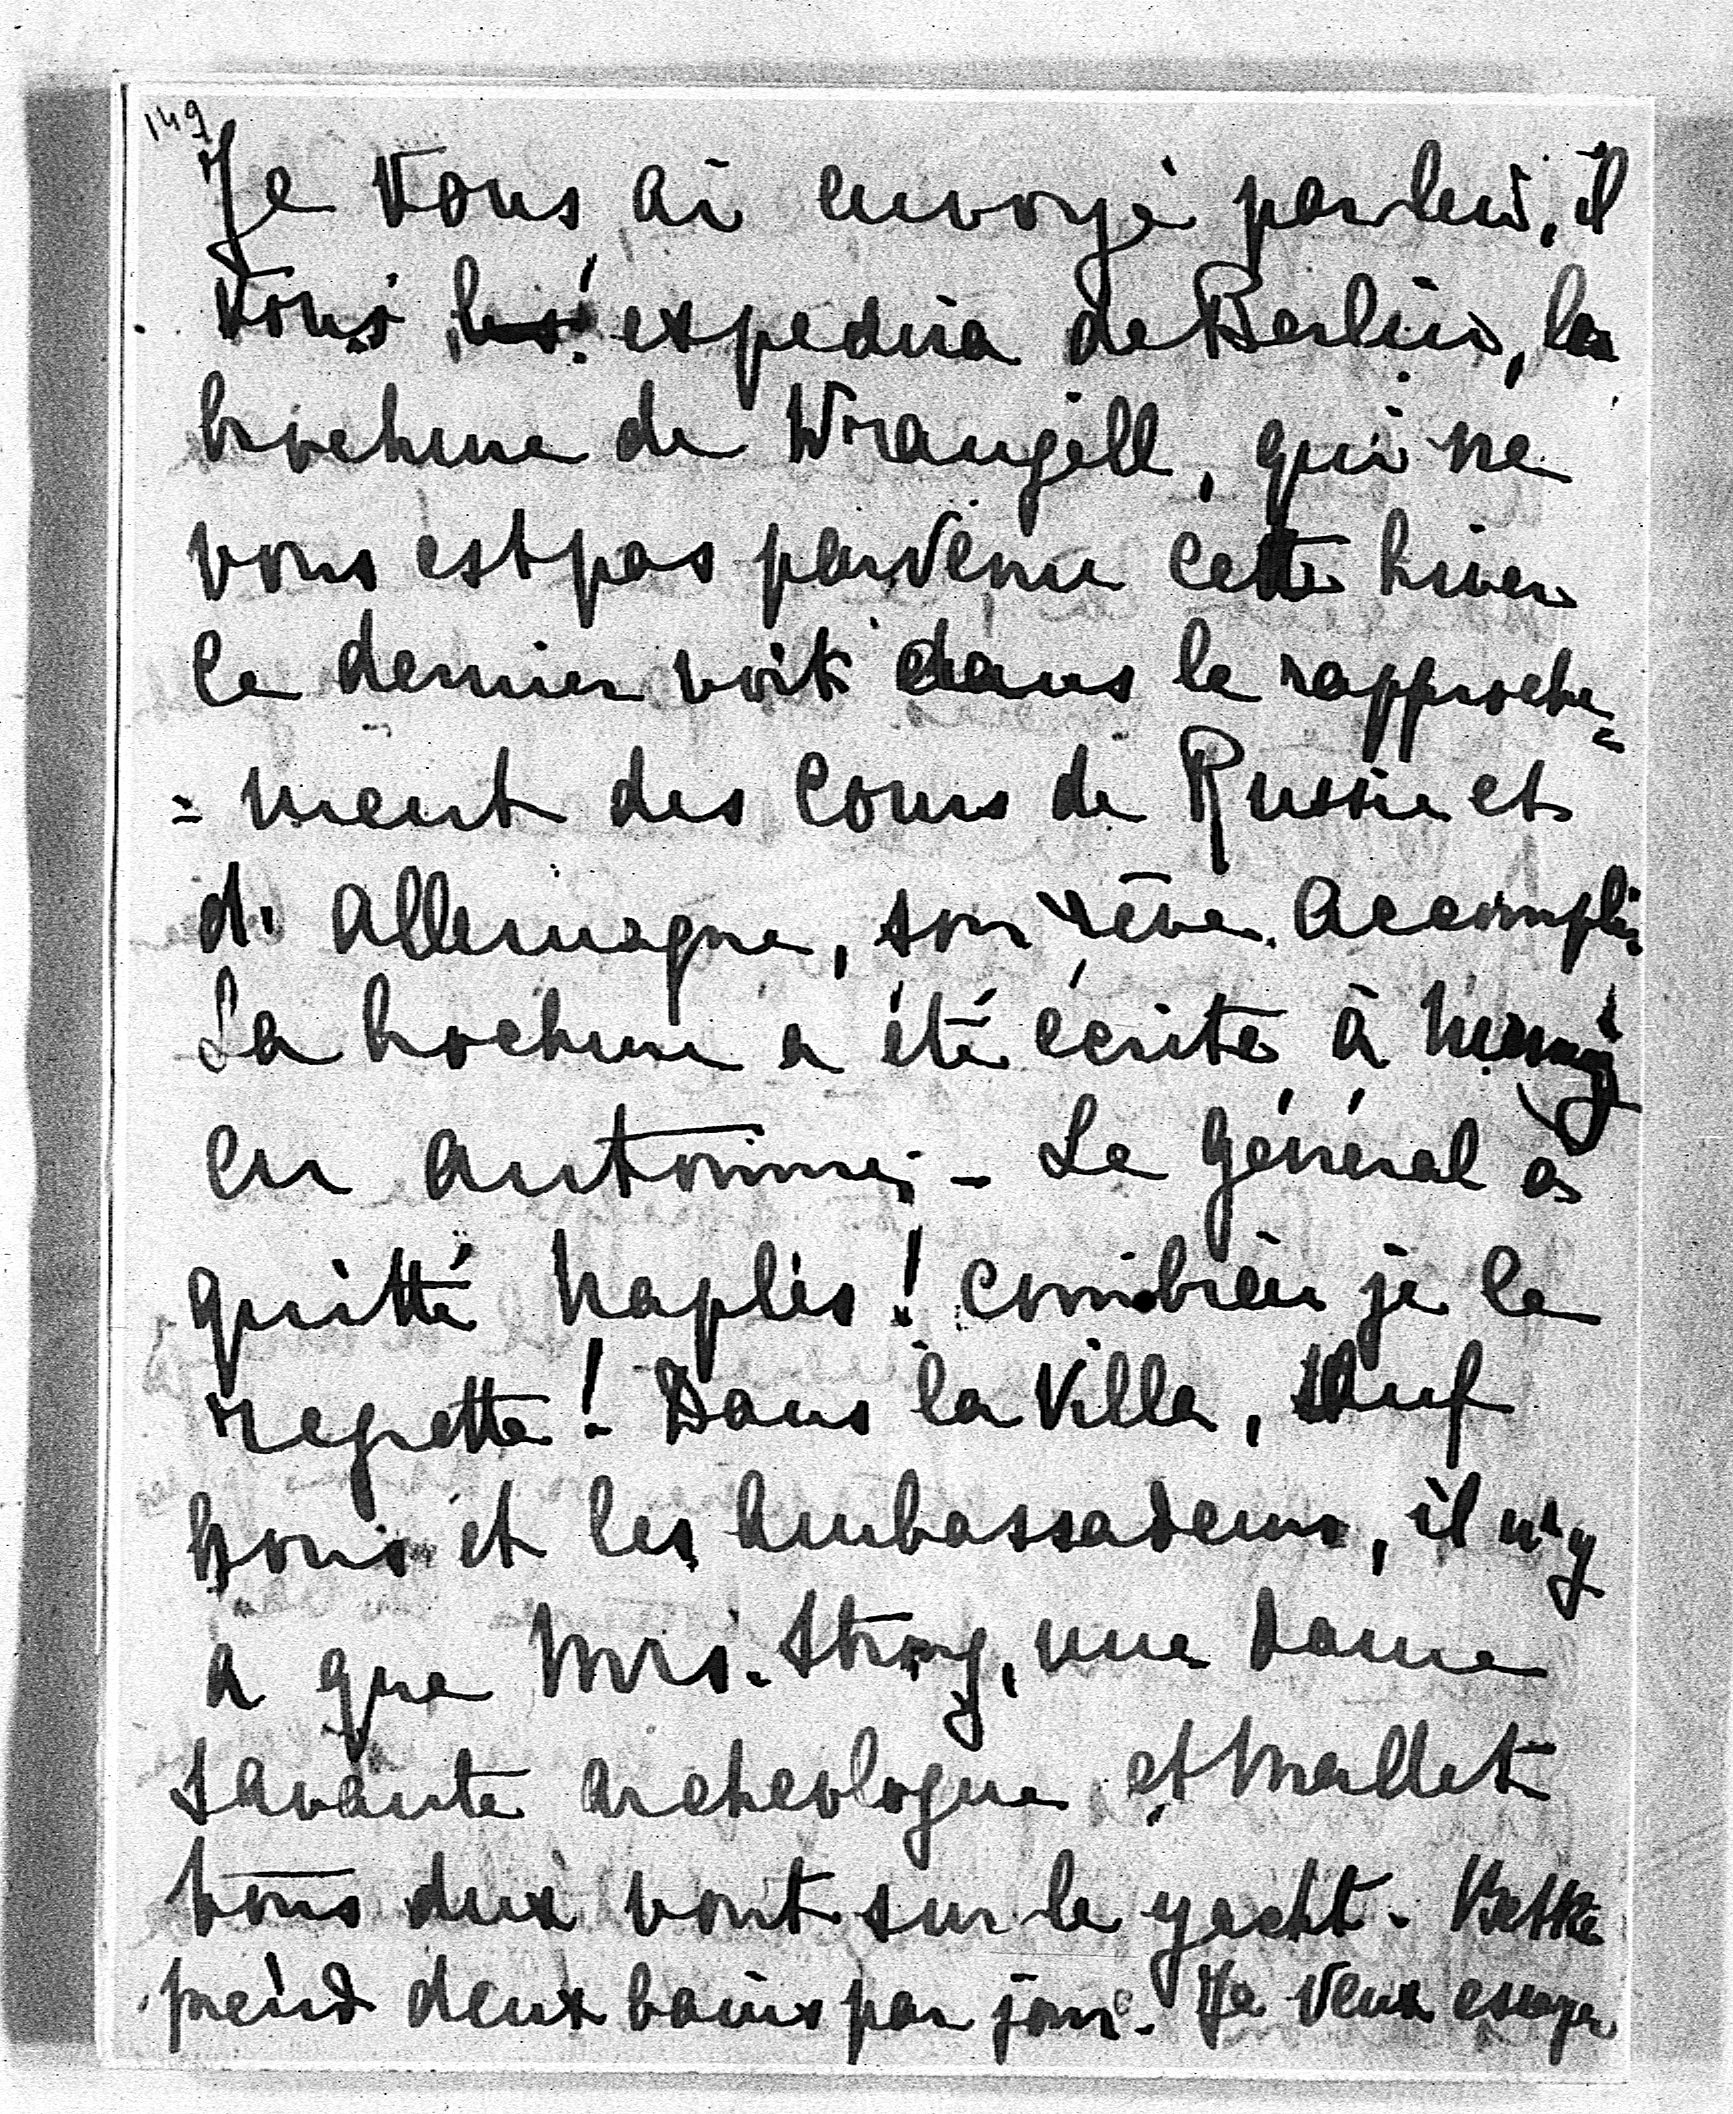 149
Je vous ai envoyé par lui, il
vous expedira de Berlin, la
brochure de Wrangell, qui ne
vous est pas parvenu cette hiver
ce dernier voit dans le rapproche=
=ment des Cours de Russie et
d'Allemagne, son rêve accompli.
La brochure a été écrite à
en automne. - Le Général a
quitté Naples! combien je le
regrette! Dans la Villa, sauf
nous et les Ambassadeurs, il n'y
a que Mrs. Strong, une dame
savante archeologue et Mallet
tous deux vont sur le yacht.
prend deux bains par jour. Je veux essayer